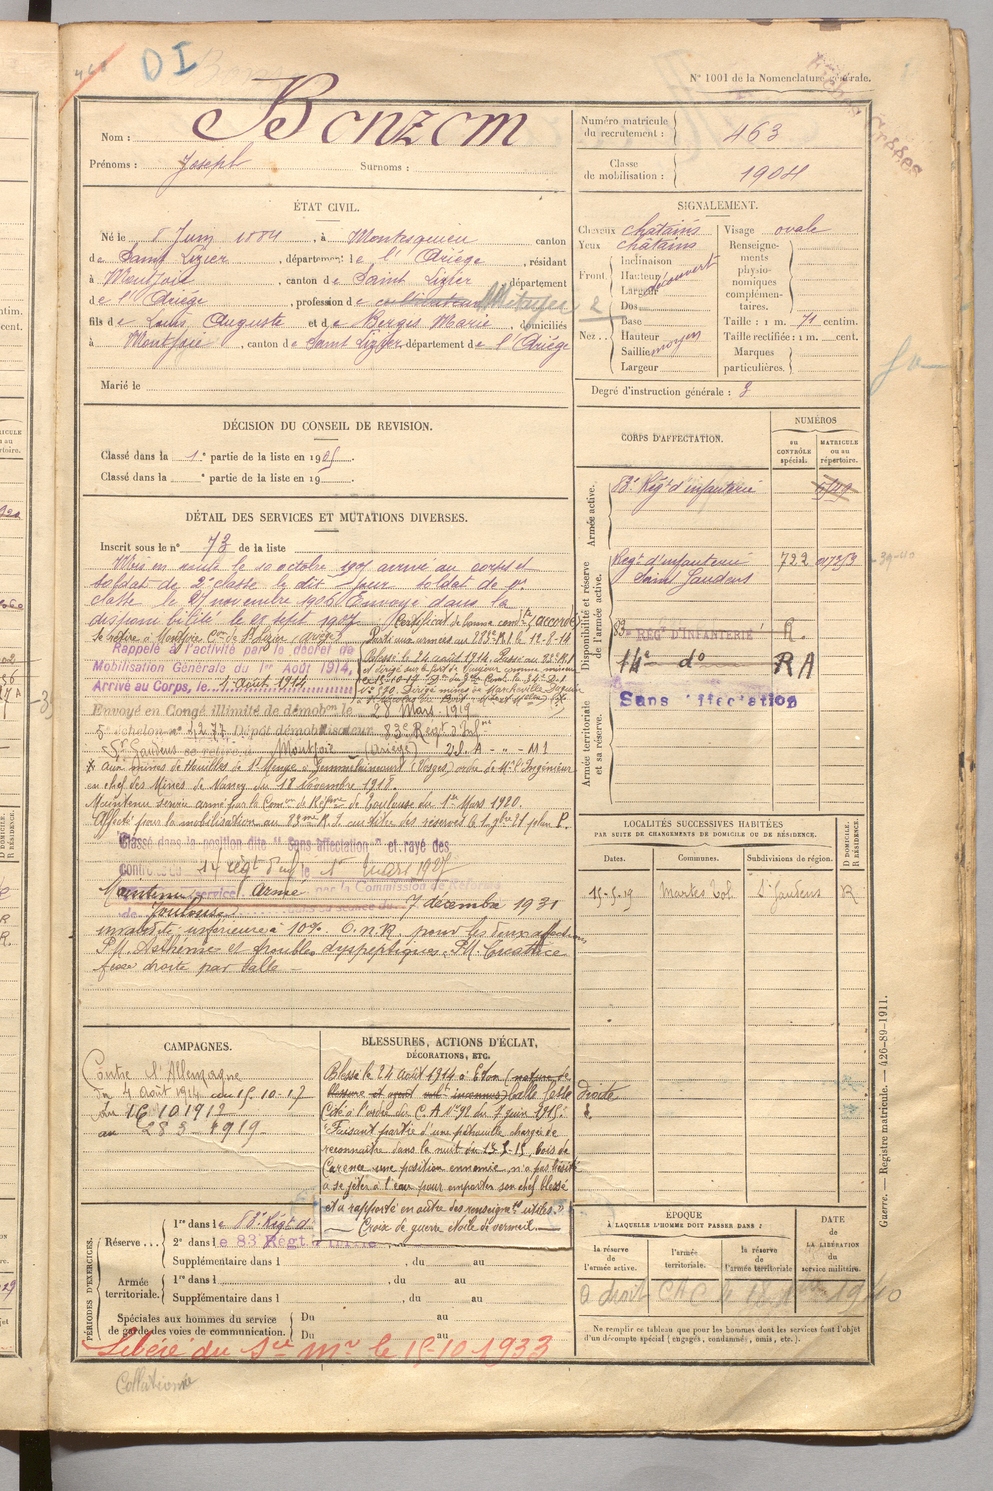 DI
N° 1001 de la Nomenclature générale.
Nom : Benzem
Prénoms : Joseph Surnoms :
Numéro matricule du recrutement : 463
Classe de mobilisation : 1904
ÉTAT CIVIL.
Né le 8 Juin 1884, à Montesquieu canton
de Saint Lizier, département de l'Ariége, résidant
à Montjoie, canton de Saint Lizier département
de l'Ariége, profession de cultivateur Métayer 2
fils de Louis Auguste et de Berges Marie, domiciliés
à Montjoie, canton de Saint Lizier département de l'Ariége
Marié le
SIGNALEMENT.
Cheveux chatains
Yeux châtains
Front. Inclinaison
Hauteur découvert
Largeur
Nez.. Dos
Base
Hauteur
Saillie moyen
Largeur
Visage ovale
Renseignements physionomiques complémentaires.
Taille : 1 m. 71 centim.
Taille rectifiée : 1 m. cent.
Marques particulières.
Degré d'instruction générale : 3
DÉCISION DU CONSEIL DE REVISION.
Classé dans la 1e partie de la liste en 1905.
Classé dans la e partie de la liste en 19
CORPS D'AFFECTATION.
NUMÉROS
au CONTRÔLE spécial.
MATRICULE ou au répertoire.
Armée active.
83e Régt d'infanterie
Disponibilité et réserve de l'armée active.
Regt d'infanterie 722
Saint Gaudens
83e REGt D'INFANTERIE R.
14e do RA
Sans affectation
Armée territoriale et sa réserve.
DÉTAIL DES SERVICES ET MUTATIONS DIVERSES.
Inscrit sous le n° 73 de la liste
Mis en route le 10 octobre 1905 arrivé au corps et
soldat de 2e classe le dit jour soldat de 1re
classe le 21 novembre 1906 Envoyé dans la
disponibilité le 28 sept 1907 Certificat de bonne condte accordé
Se retire à Montjoie Con de St Lizier (Ariége) Parti aux armées au 283e R.I le 12-8-14
Rappelé à l'activité par le décret de
Mobilisation Générale du 1er Août 1914,
Arrivé au Corps, le 4 Août 1914
Blessé le 24 août 1914. Passé au 83e R.I
Envoyé en Congé illimité de démobon le 28 Mars 1919
8e échelon n° 4277 Dépôt démobilisateur 83e Régt d'Infrie
St Gaudens se retire à Montjoie (Ariége)
* aux mines de Houilles de St Menge à Gemmelaincourt (Vosges) ordre de Mr l'Ingénieur
en chef des Mines de Nancy du 18 Novembre 1918.
Maintenu service armé par la Comon de Réfme de Toulouse du 1er Mars 1920.
Affecté pour la mobilisation au 83me R.I
Classé dans la position dite "Sans affectation" et rayé des
contrôles du 14 régt d'Inf le 1er Mars 1927
Maintenu service armé par la Commission de Réforme
de Toulouse dans sa séance du 7 décembre 1931
invalidité inférieure à 10% O.n.R. pour les deux affections
P.M. Asthénie et troubles dyspeptiques. P.M. Cicatrice
fesse droite par balle
LOCALITÉS SUCCESSIVES HABITÉES
PAR SUITE DE CHANGEMENTS DE DOMICILE OU DE RÉSIDENCE.
Dates. Communes. Subdivisions de région. D DOMICILE. R RÉSIDENCE.
15-5-19 Martes Tol. St Gaudens R
CAMPAGNES.
Contre l'Allemagne
du 4 Août 1914 au 15-10-17
du 16 10 1917
au 28 3 1919
BLESSURES, ACTIONS D'ÉCLAT,
DÉCORATIONS, ETC.
Blessé le 24 Août 1914 à Eton (nature de
blessure et agent vulnt inconnus) balle fesse droite
Cité à l'ordre du C. A n° 92 du 7 juin 1915.
"Faisant partie d'une patrouille chargée de
reconnaître dans la nuit du 13-5-15, bois de
Carence une position ennemie, n'a pas hésité
à se jeter à l'eau pour emporter son chef blessé
et a rapporté en outre des renseignts utiles."
Croix de guerre étoile de vermeil.
PÉRIODES D'EXERCICES.
Réserve... 1re dans le 83e Régt d
2e dans le 83 Régt
Supplémentaire dans l , du au
Armée territoriale. 1re dans l , du au
Supplémentaire dans l , du au
Spéciales aux hommes du service de garde des voies de communication. Du au
Du au
Libéré du Sce Mre le 15-10-1933
Collationné
ÉPOQUE
À LAQUELLE L'HOMME DOIT PASSER DANS :
la réserve de l'armée active. l'armée territoriale. la réserve de l'armée territoriale
DATE DE LA LIBÉRATION du service militaire.
Ne remplir ce tableau que pour les hommes dont les services font l'objet
d'un décompte spécial (engagés, condamnés, omis, etc.).
Guerre. — Registre matricule. — 426-89-1911.